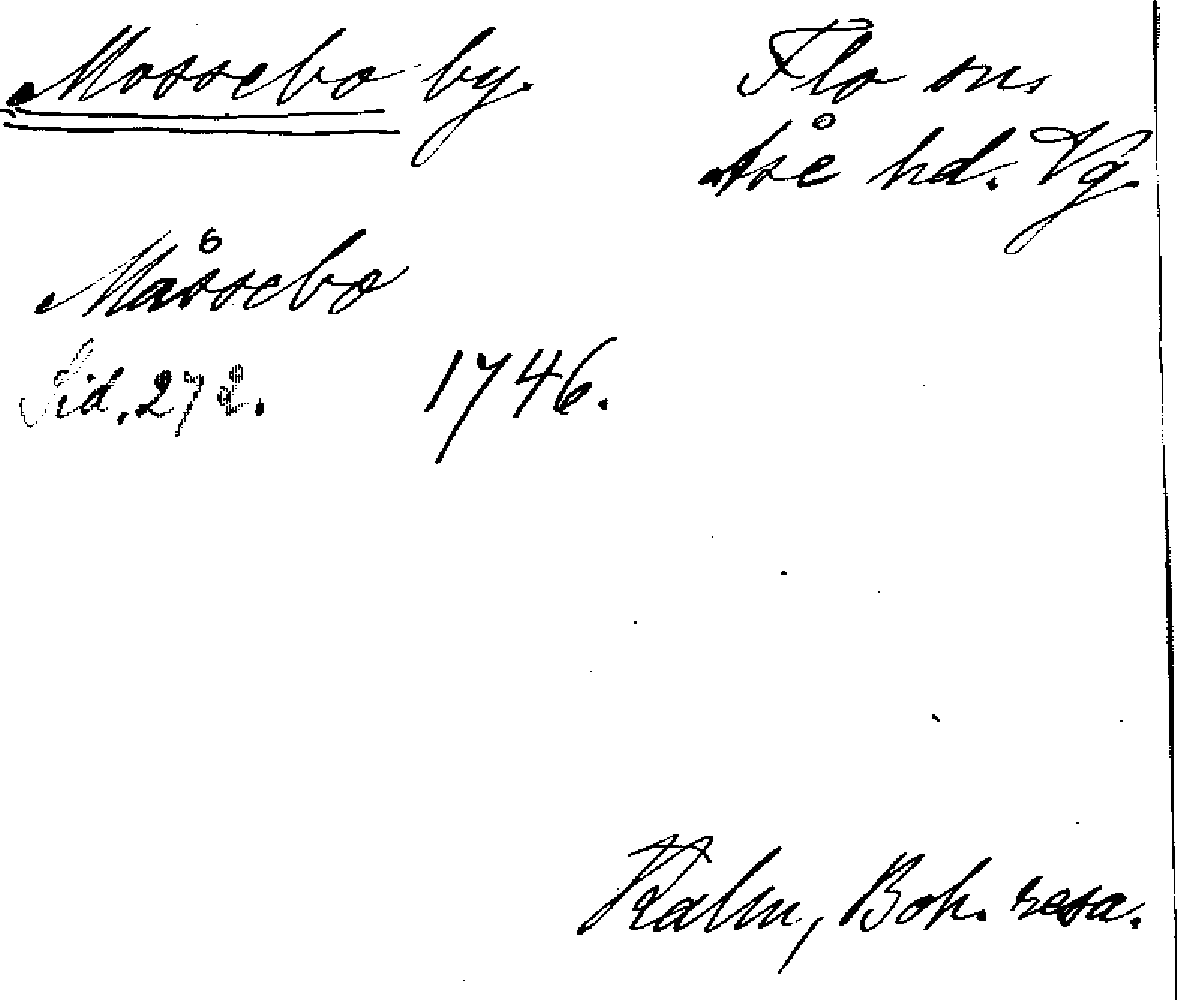 Mossebo by. Flo sn.
Åse hd. Vg.
Måssebo
Sid. 272. 1746.
Kalm, Boh. resa.